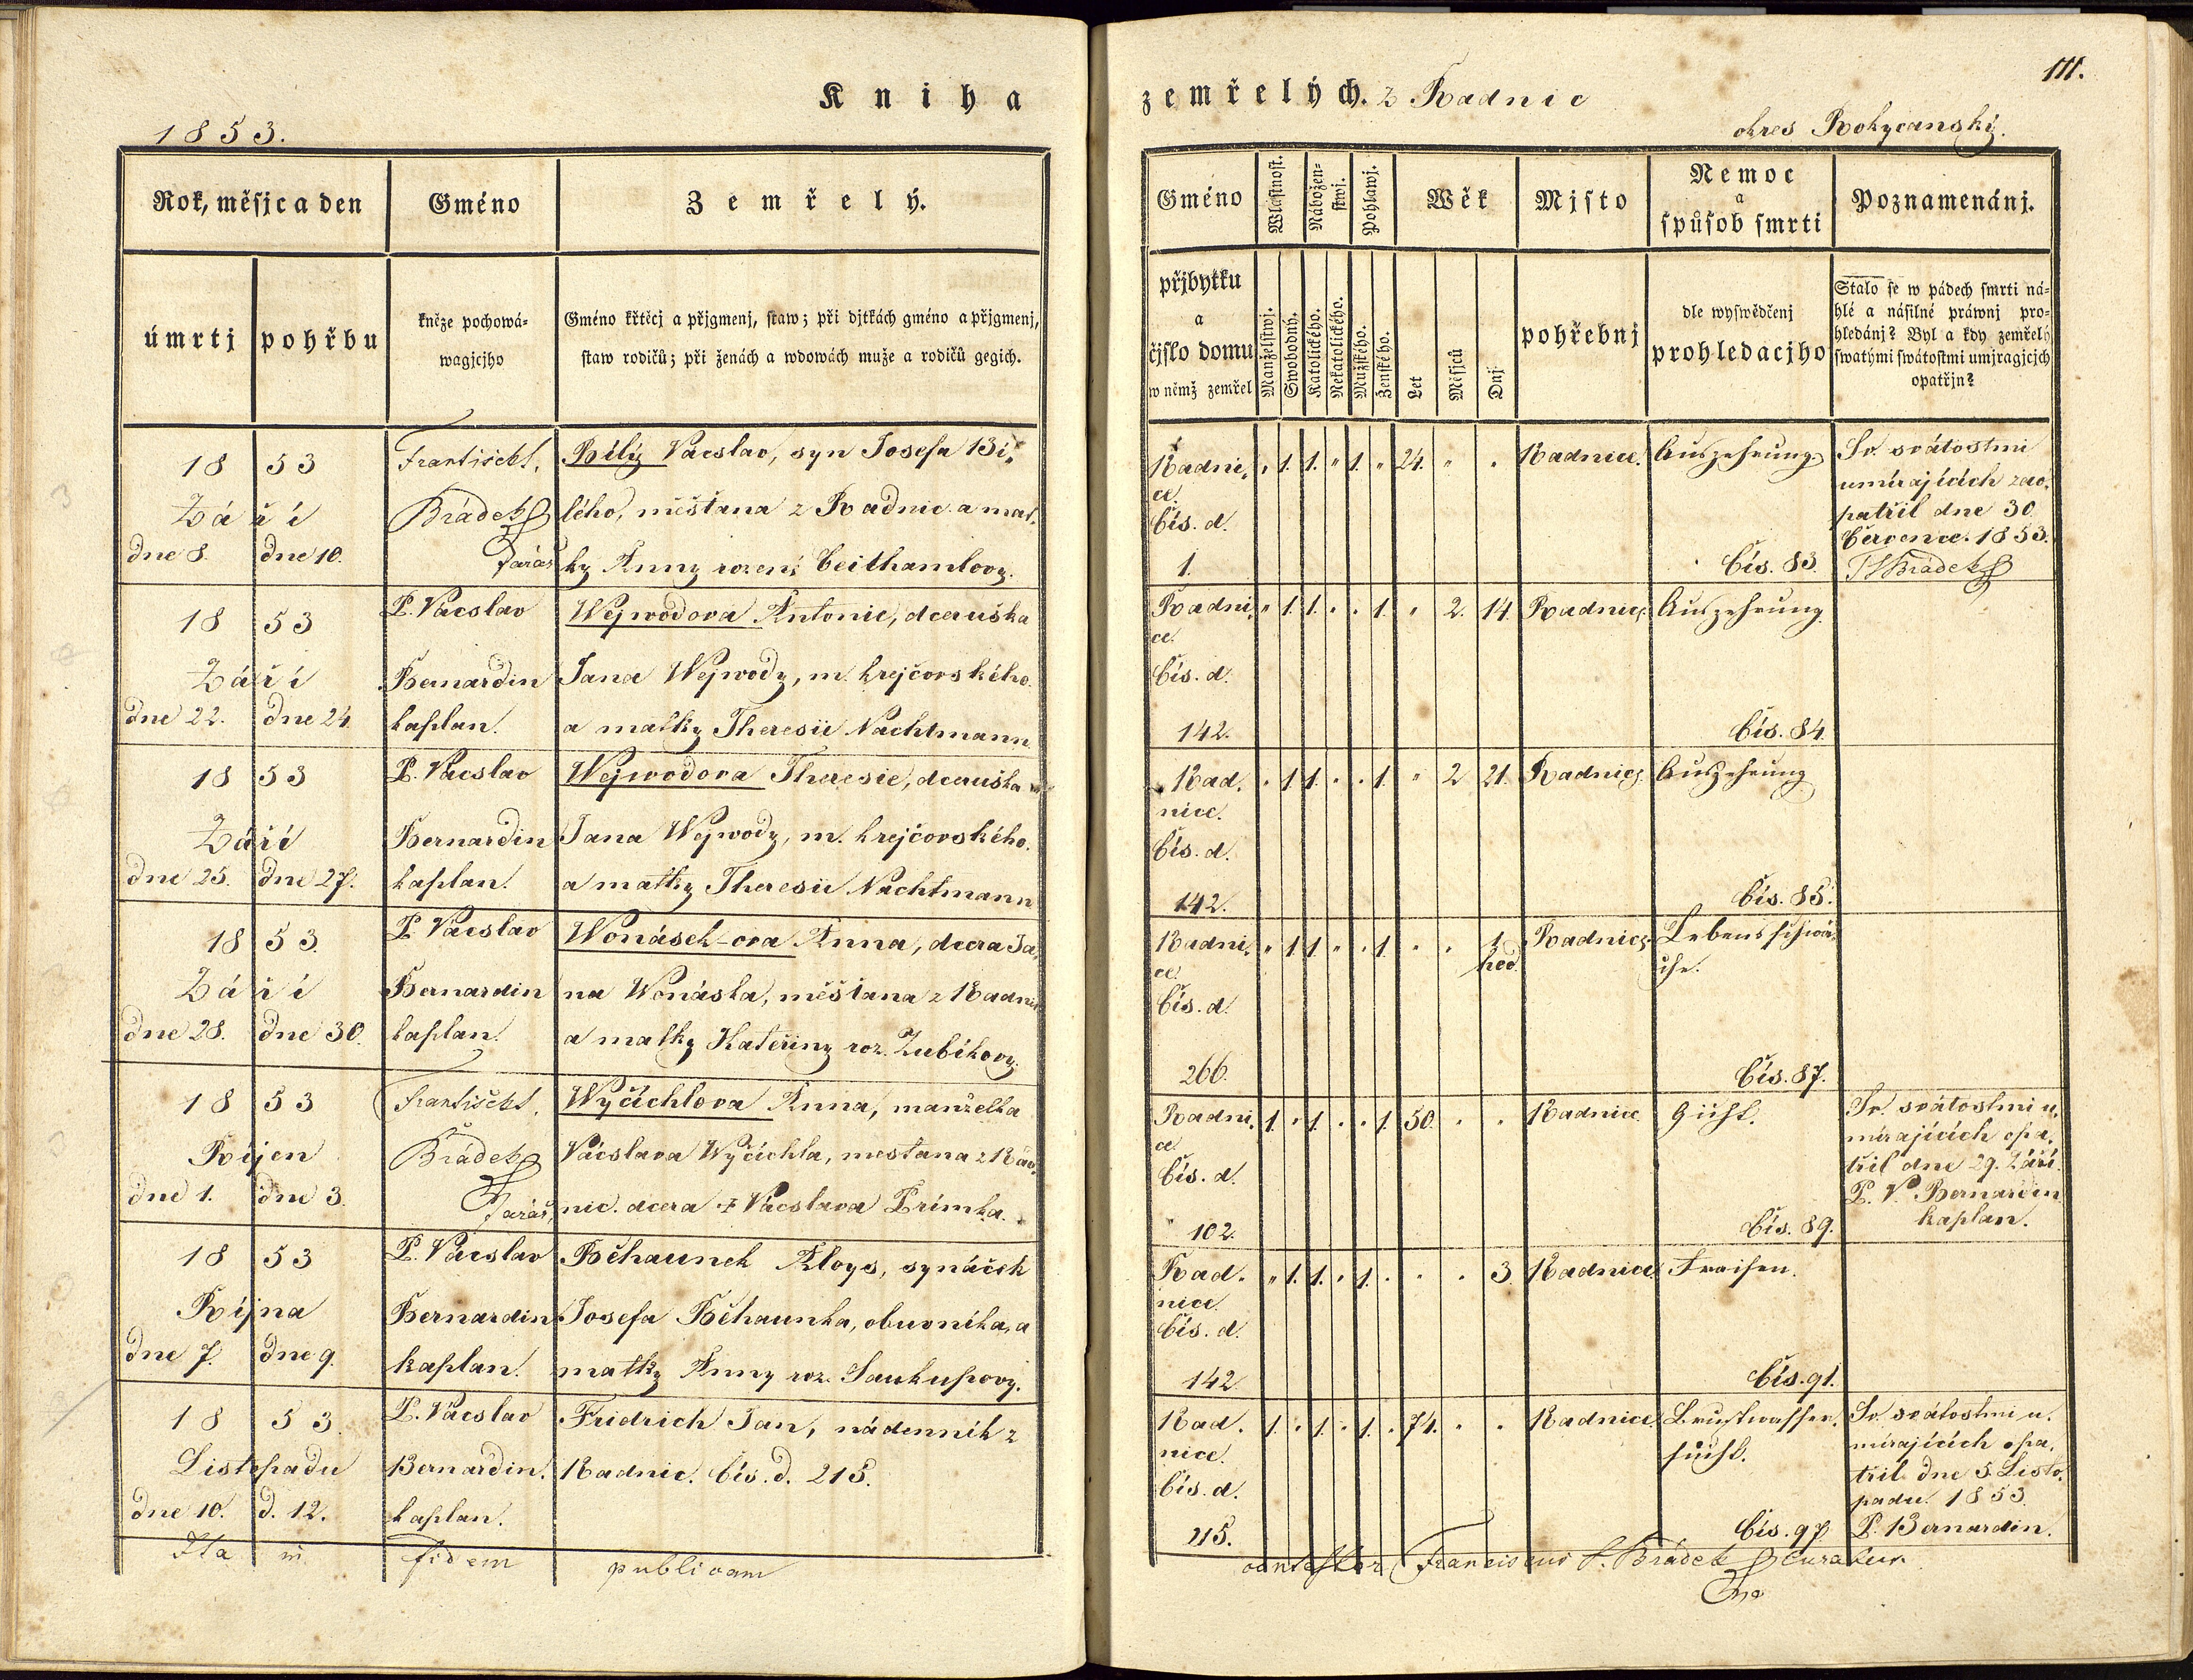 Kniha
1853.
Rok, měsjc a den
Gméno
Zemřelý.
úmrtj
pohřbu
kněze pochowá-
wagjcjho
Gméno křtěcj a přjgmenj, staw; při djtkách gméno a přjgmenj,
staw rodičů; při ženách a wdowách muže a rodičů gegich.
18 53
Září
dne 8. dne 10.
František S.
Brádek
Farář
Bílý Vácslav, syn Josefa Bí,
lého, měšťana z Radnic a mat,
ky Anny rozené Ceithamlovy.
18 53
Září
dne 22. dne 24.
P. Vácslav
Bernardin
kaplan.
Wejwodova Antonie, dceruška
Jana Wejwody, m. krejčovského.
a matky Theresie Nachtmann
18 53
Září
dne 25. dne 27.
P. Vácslav
Bernardin
kaplan.
Wejwodova Theresie, dceruška
Jana Wejwody, m. krejčovského.
a matky Theresie Nachtmann
18 53.
Září
dne 28. dne 30.
P. Vácslav
Bernardin
kaplan.
Wonásek-ova Anna, dcera Ja,
na Wonáska, měšťana z Radnic
a matky Kateřiny roz. Zubíkovy.
18 53
Říjen
dne 1. dne 3.
František S.
Brádek
Farář,
Wyčichlova Anna, manželka
Vácslava Wyčichla, mestana z Rad,
nic. dcera + Vácslava Prímka.
18 53
Října
dne 7. dne 9.
P. Vácslav
Bernardin
kaplan.
Běhaunek Aloys, synáček
Josefa Běhaunka, obuvníka, a
matky Anny roz. Saukupovy.
18 53.
Listopadu
dne 10. d. 12.
P. Vácslav
Bernardin.
kaplan.
Fridrich Jan, nádenník z
Radnic. Čís. d. 215.
Ita in fidem publicam
111.
zemřelých. z Radnic
okres Rokycanský.
Gméno
Wlastnost.
Nábožen-
stwj.
Pohlawj.
Wěk
Mjsto
Nemoc
a
spůsob smrti
Poznamenánj.
přjbytku
a
čjslo domu
w němž zemřel
Manželstwj.
Swobodný.
Katolického.
Nekatolického.
Mužského.
Ženského.
Let
Měsjců
Dnj
pohřebnj
dle wyswědčenj
prohledacjho
Stalo se w pádech smrti ná-
hlé a násilné práwnj pro-
hledánj? Byl a kdy zemřelý
swatými swátostmi umjragjcjch
opatřjn?
Radni,
ce.
Čís. d.
1.
" 1. 1. " 1. " 24. " "
Radnice.
Auszehrung.
Čís. 83.
Sv. svátostmi
umírajících zao,
patřil dne 30.
Července. 1853.
FSBrádek
Radni,
ce.
Čís. d.
142.
" 1. 1. " " 1. " 2. 14.
Radnice
Auszehrung.
Čís. 84.
Rad,
nice.
Čís. d.
142.
" 1. 1. " " 1. " 2 21.
Radnice
Auszehrung
Čís. 85.
Radni,
ce.
Čís. d.
266.
" 1 1. " " 1. " " 1
hod.
Radnice
Lebensschwä,
che.
Čís. 87.
Radni,
ce.
Čís. d.
102.
1. " 1. " " 1. 50. " "
Radnice.
Gicht.
Čís. 89.
Sv. svátostmi u,
mírajících opa,
třil dne 29. Září.
P. V. Bernardin
kaplan.
Rad,
nice.
Čís. d.
142.
" 1. 1. " 1. " " " 3.
Radnice
Fraisen.
Čís. 91.
Rad,
nice.
Čís. d.
215.
1. " 1. " 1. " 74. " "
Radnice
Brustwasser,
sucht.
Čís. 97.
Sv. svátostmi u,
mírajících opa,
třil dne 5. Listo,
padu. 1853.
P. Bernardin.
Franciscus S. Brádek Curatus.